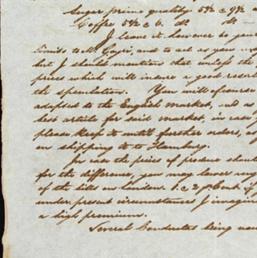 Sugar prime quality 5¾ c 9¾ a
Coffee 5¾ c 6. dt dt
I leave it, however to your
limits to Mr Capri, and to act as you
but I should mention that unless the
prices which will insure a good result
the speculation. You will of course
adapted to the English market, and as
less article for suit market, in case
please keep it untill further orders, as
on shipping to to Hamburg.
In case the prices of produce shoul
for the difference, you may lower
of the bills on London.
under present circumstances I imagin
a high premium.
Several Candrates being now